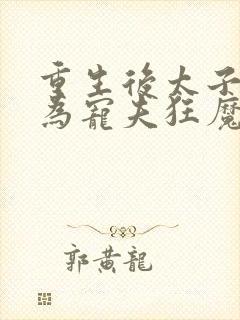 重生後太子
為寵夫狂魔
郭黃龍